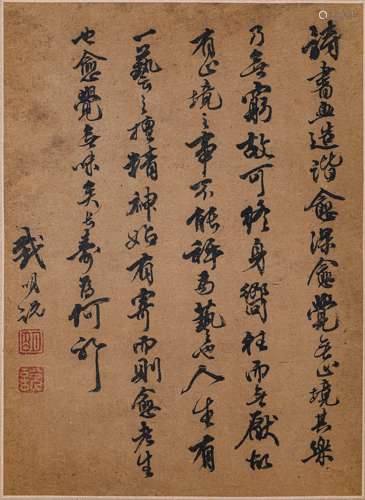 詩書畫造詣愈深愈覺無止境其樂
乃無窮故可終身嚮往而無厭故
有止境之事不能稱為藝也人生有
一藝之擅精神始有寄而則愈老生
也愈覺無味矣長壽為何許
戴明說